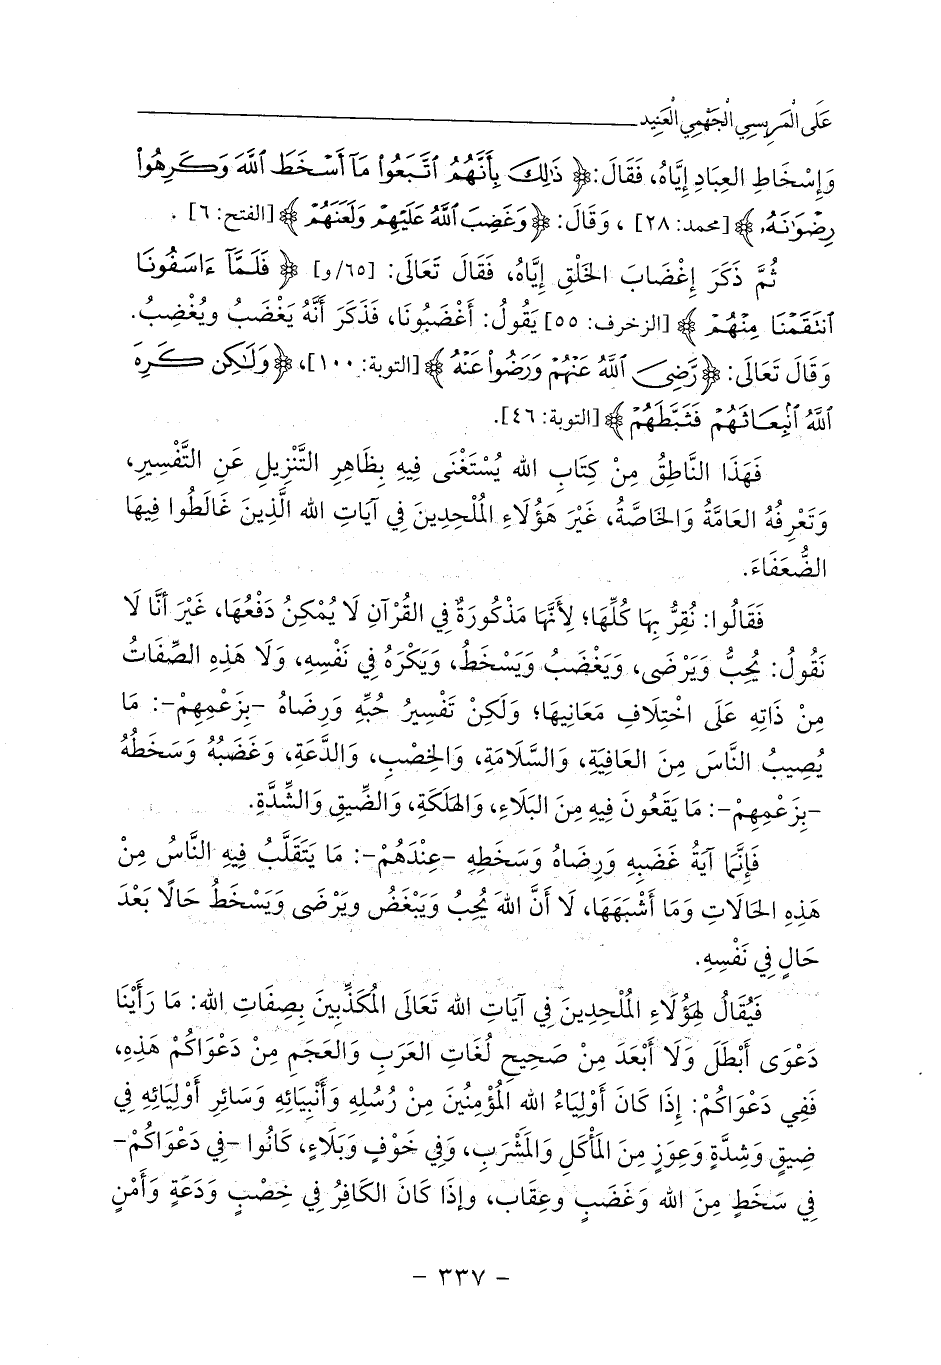 عَلَى الْمَرِيسِي الْجَهْمِي الْعَنِيد
وَإِسْخَاطِ العِبَادِ إِيَّاهُ، فَقَالَ: ﴿ ذَٰلِكَ بِأَنَّهُمُ ٱتَّبَعُواْ مَآ أَسْخَطَ ٱللَّهَ وَكَرِهُواْ
رِضْوَٰنَهُۥ ﴾ [محمد: ٢٨] ، وَقَالَ: ﴿ وَغَضِبَ ٱللَّهُ عَلَيْهِمْ وَلَعَنَهُمْ ﴾ [الفتح: ٦] .
ثُمَّ ذَكَرَ إِغْضَابَ الخَلْقِ إِيَّاهُ، فَقَالَ تَعَالَى: [٦٥/و] ﴿ فَلَمَّآ ءَاسَفُونَا
ٱنتَقَمْنَا مِنْهُمْ ﴾ [الزخرف: ٥٥] يَقُولُ: أَغْضَبُونَا، فَذَكَرَ أَنَّهُ يَغْضَبُ ويُغْضِبُ.
وَقَالَ تَعَالَى: ﴿ رَّضِىَ ٱللَّهُ عَنْهُمْ وَرَضُواْ عَنْهُ ﴾ [التوبة: ١٠٠]، ﴿ وَلَٰكِن كَرِهَ
ٱللَّهُ ٱنۢبِعَاثَهُمْ فَثَبَّطَهُمْ ﴾ [التوبة: ٤٦].
فَهَذَا النَّاطِقُ مِنْ كِتَابِ الله يُسْتَغْنَى فِيهِ بِظَاهِرِ التَّنْزِيلِ عَنِ التَّفْسِيرِ،
وَتَعْرِفُهُ العَامَّةُ وَالخَاصَّةُ، غَيْرَ هَؤُلَاءِ المُلْحِدِينَ فِي آيَاتِ الله الَّذِينَ غَالَطُوا فِيهَا
الضُّعَفَاءَ.
فَقَالُوا: نُقِرُّ بِهَا كُلِّهَا؛ لِأَنَّهَا مَذْكُورَةٌ فِي القُرْآنِ لَا يُمْكِنُ دَفْعُهَا، غَيْرَ أَنَّا لَا
نَقُولُ: يُحِبُّ وَيَرْضَى، وَيَغْضَبُ وَيَسْخَطُ، وَيَكْرَهُ فِي نَفْسِهِ، وَلَا هَذِهِ الصِّفَاتُ
مِنْ ذَاتِهِ عَلَى اخْتِلَافِ مَعَانِيهَا؛ وَلَكِنْ تَفْسِيرُ حُبِّهِ وَرِضَاهُ -بِزَعْمِهِمْ-: مَا
يُصِيبُ النَّاسَ مِنَ العَافِيَةِ، وَالسَّلَامَةِ، وَالخِصْبِ، وَالدَّعَةِ، وَغَضَبُهُ وَسَخَطُهُ
-بِزَعْمِهِمْ-: مَا يَقَعُونَ فِيهِ مِنَ البَلَاءِ، وَالهَلَكَةِ، وَالضِّيقِ وَالشِّدَّةِ.
فَإِنَّمَا آيَةُ غَضَبِهِ وَرِضَاهُ وَسَخَطِهِ -عِنْدَهُمْ-: مَا يَتَقَلَّبُ فِيهِ النَّاسُ مِنْ
هَذِهِ الحَالَاتِ وَمَا أَشْبَهَهَا، لَا أَنَّ اللهَ يُحِبُّ وَيَبْغَضُ ويَرْضَى وَيَسْخَطُ حَالًا بَعْدَ
حَالٍ فِي نَفْسِهِ.
فَيُقَالُ لِهَؤُلَاءِ المُلْحِدِينَ فِي آيَاتِ الله تَعَالَى المُكَذِّبِينَ بِصِفَاتِ الله: مَا رَأَيْنَا
دَعْوَى أَبْطَلَ وَلَا أَبْعَدَ مِنْ صَحِيحِ لُغَاتِ العَرَبِ وَالعَجَمِ مِنْ دَعْوَاكُمْ هَذِهِ،
فَفِي دَعْوَاكُمْ: إِذَا كَانَ أَوْلِيَاءُ الله المُؤْمِنُينَ مِنْ رُسُلِهِ وَأَنْبِيَائِهِ وَسَائِرِ أَوْلِيَائِهِ فِي
ضِيقٍ وَشِدَّةٍ وَعِوَزٍ مِنَ المَأْكَلِ وَالمَشْرَبِ، وَفِي خَوْفٍ وَبَلَاءٍ، كَانُوا -فِي دَعْوَاكُمْ-
فِي سَخَطٍ مِنَ الله وَغَضَبٍ وعِقَاب، وإذَا كَانَ الكَافِرُ فِي خِصْبٍ وَدَعَةٍ وَأَمْنٍ
- ٣٣٧ -